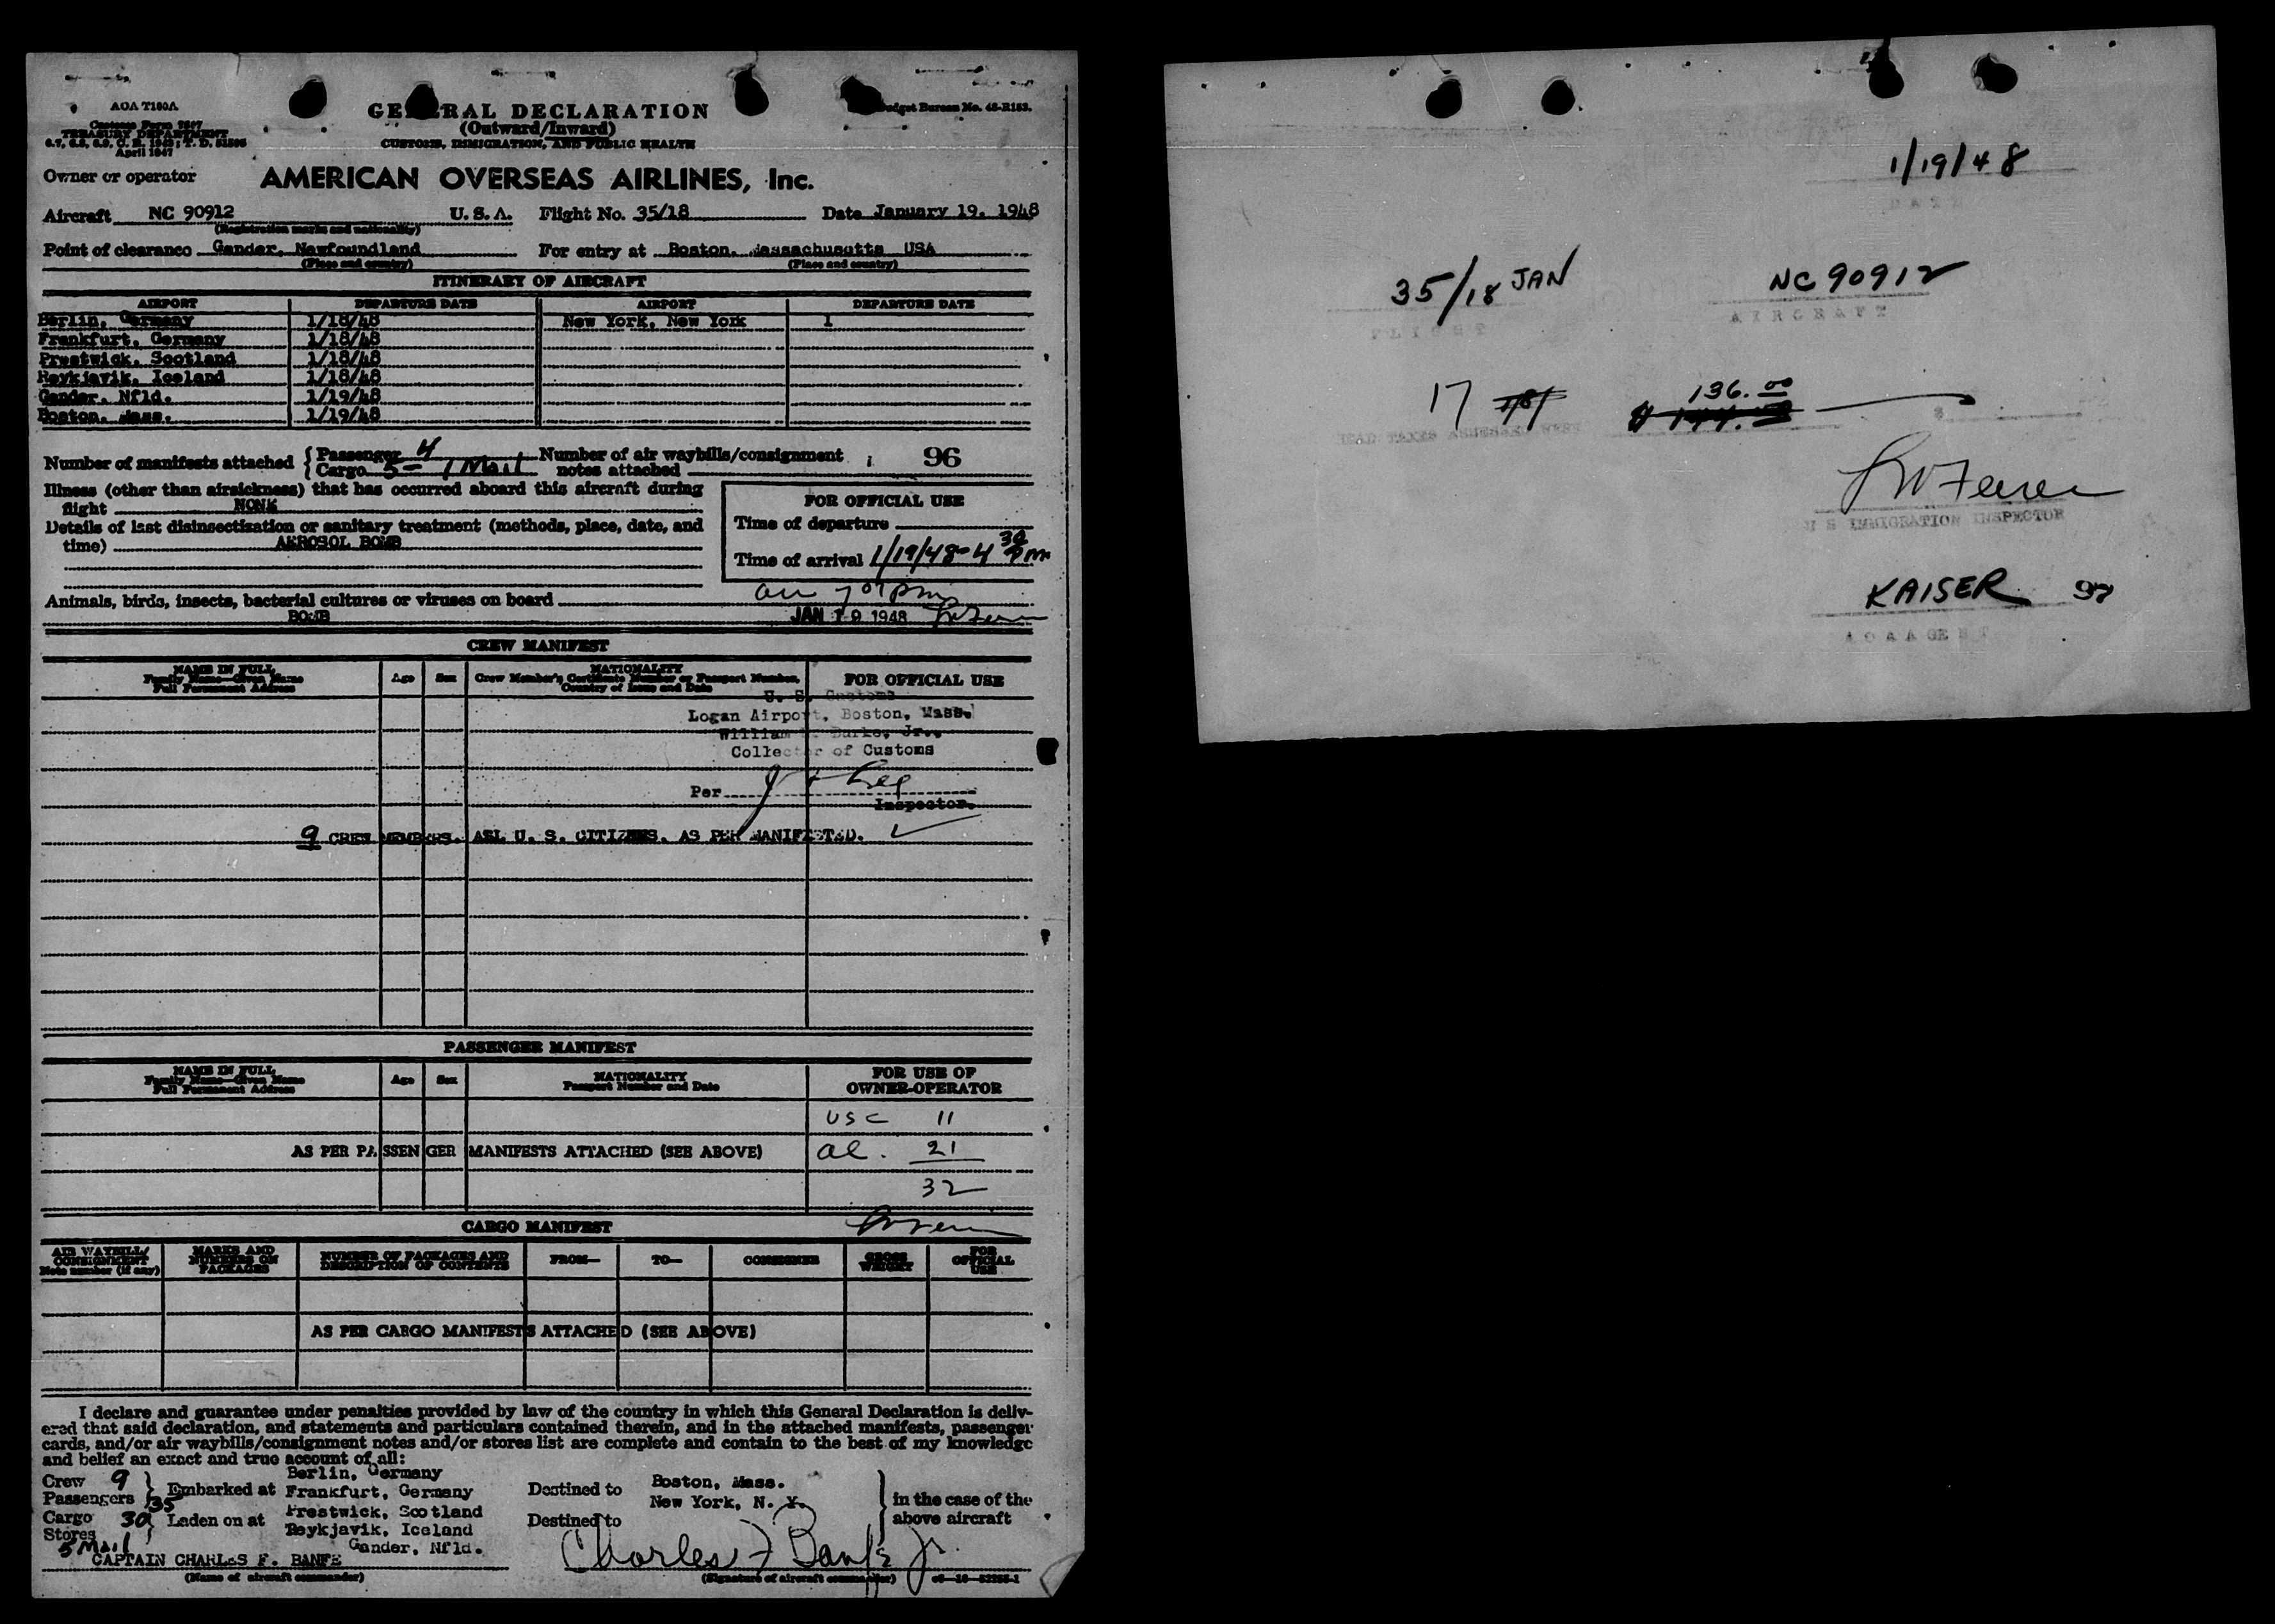 AOA T100A
Customs Form 7507
TREASURY DEPARTMENT
April 1947
GENERAL DECLARATION
(Outward/Inward)
CUSTOMS, IMMIGRATION, AND PUBLIC HEALTH
Budget Bureau No. 48-R183.
Owner or operator AMERICAN OVERSEAS AIRLINES, Inc.
Aircraft NC 90912 U. S. A. Flight No. 35/18 Date January 19, 1948
(Registration marks and nationality)
Point of clearance Gander, Newfoundland For entry at Boston, Massachusetts USA
(Place and country) (Place and country)
ITINERARY OF AIRCRAFT
AIRPORT DEPARTURE DATE AIRPORT DEPARTURE DATE
Berlin, Germany 1/18/48 New York, New York 1
Frankfurt, Germany 1/18/48
Prestwick, Scotland 1/18/48
Reykjavik, Iceland 1/18/48
Gander, Nfld. 1/19/48
Boston, Mass. 1/19/48
Number of manifests attached { Passenger 4 Number of air waybills/consignment 96
Cargo 5 - 1 Mail notes attached
Illness (other than airsickness) that has occurred aboard this aircraft during
flight NONE
Details of last disinsectization or sanitary treatment (methods, place, date, and
time) AEROSOL BOMB
FOR OFFICIAL USE
Time of departure
Time of arrival 1/19/48-4 30 pm
Animals, birds, insects, bacterial cultures or viruses on board
JAN 19 1948
CREW MANIFEST
NAME IN FULL Age Sex NATIONALITY FOR OFFICIAL USE
Family Name—Given Name Crew Member's Certificate Number or Passport Number,
Full Permanent Address Country of Issue and Date
U. S. Customs
Logan Airport, Boston, Mass.
William Burke, Jr.,
Collector of Customs
Per
Inspector.
9 CREW MEMBERS. ASL U. S. CITIZENS. AS PER MANIFESTED.
PASSENGER MANIFEST
NAME IN FULL Age Sex NATIONALITY FOR USE OF
Family Name—Given Name Passport Number and Date OWNER-OPERATOR
Full Permanent Address
USC 11
AS PER PASSENGER MANIFESTS ATTACHED (SEE ABOVE) al. 21
32
CARGO MANIFEST
AIR WAYBILL/ MARKS AND NUMBER OF PACKAGES AND FROM— TO— CONSIGNEE GROSS FOR
CONSIGNMENT NUMBERS ON DESCRIPTION OF CONTENTS WEIGHT OFFICIAL
Note number (if any) PACKAGES USE
AS PER CARGO MANIFESTS ATTACHED (SEE ABOVE)
I declare and guarantee under penalties provided by law of the country in which this General Declaration is deliv-
ered that said declaration, and statements and particulars contained therein, and in the attached manifests, passenger
cards, and/or air waybills/consignment notes and/or stores list are complete and contain to the best of my knowledge
and belief an exact and true account of all:
Crew 9 Berlin, Germany
Passengers 35 Embarked at Frankfurt, Germany Destined to Boston, Mass. in the case of the
Cargo 30 Laden on at Prestwick, Scotland New York, N. Y. above aircraft
Stores Reykjavik, Iceland Destined to
5 Mail Gander, Nfld.
CAPTAIN CHARLES F. BANFE Charles F Banfe Jr.
(Name of aircraft commander) (Signature of aircraft commander)
1/19/48
DATE
35/18 JAN NC 90912
FLIGHT AIRCRAFT
17 136.00
HEAD TAXES ASSESSED WERE $
U S IMMIGRATION INSPECTOR
KAISER 97
AOA AGENT